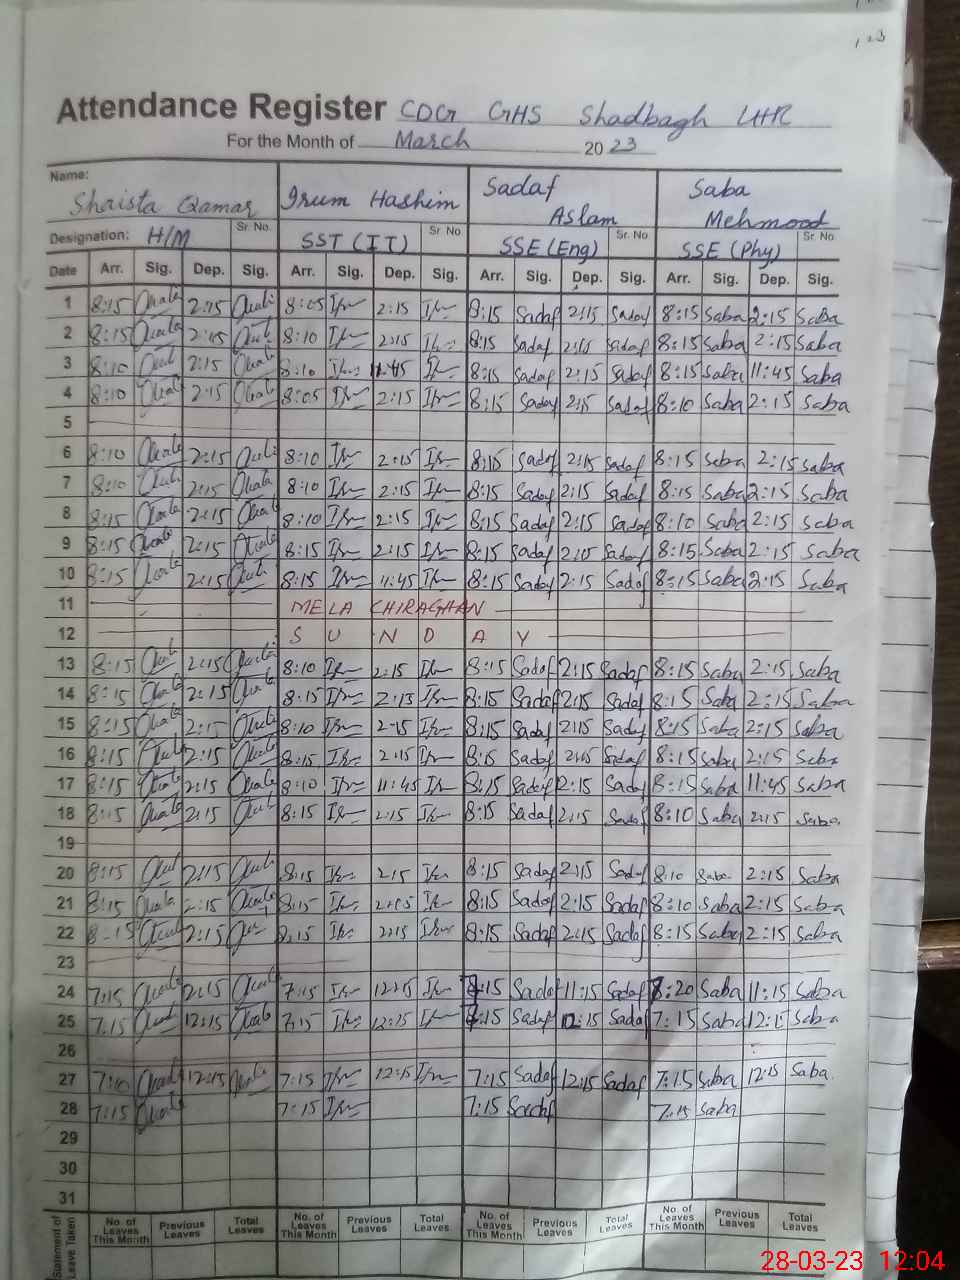 123
Attendance Register CDG GHS Shadbagh LHR
For the Month of March 2023
Name: Shaista Qamar Irum Hashim Sadaf Aslam Saba Mehmood
Designation: H/M Sr. No. SST (IT) Sr. No. SSE (Eng) Sr. No. SSE (Phy) Sr. No.
Date Arr. Sig. Dep. Sig. Arr. Sig. Dep. Sig. Arr. Sig. Dep. Sig. Arr. Sig. Dep. Sig.
1 8:15 2:15 8:05 2:15 8:15 Sadaf 2:15 Sadaf 8:15 Saba 2:15 Saba
2 8:15 2:15 8:10 2:15 8:15 Sadaf 2:15 Sadaf 8:15 Saba 2:15 Saba
3 8:10 2:15 8:10 11:45 8:15 Sadaf 2:15 Sadaf 8:15 Saba 11:45 Saba
4 8:10 2:15 8:05 2:15 8:15 Sadaf 2:15 Sadaf 8:10 Saba 2:15 Saba
5
6 8:10 2:15 8:10 2:15 8:15 Sadaf 2:15 Sadaf 8:15 Saba 2:15 Saba
7 8:10 2:15 8:10 2:15 8:15 Sadaf 2:15 Sadaf 8:15 Saba 2:15 Saba
8 8:15 2:15 8:10 2:15 8:15 Sadaf 2:15 Sadaf 8:10 Saba 2:15 Saba
9 8:15 2:15 8:15 2:15 8:15 Sadaf 2:15 Sadaf 8:15 Saba 2:15 Saba
10 8:15 2:15 8:15 11:45 8:15 Sadaf 2:15 Sadaf 8:15 Saba 2:15 Saba
11 MELA CHIRAGHAN
12 SUNDAY
13 8:15 2:15 8:10 2:15 8:15 Sadaf 2:15 Sadaf 8:15 Saba 2:15 Saba
14 8:15 2:15 8:15 2:15 8:15 Sadaf 2:15 Sadaf 8:15 Saba 2:15 Saba
15 8:15 2:15 8:10 2:15 8:15 Sadaf 2:15 Sadaf 8:15 Saba 2:15 Saba
16 8:15 2:15 8:15 2:15 8:15 Sadaf 2:15 Sadaf 8:15 Saba 2:15 Saba
17 8:15 2:15 8:10 11:45 8:15 Sadaf 2:15 Sadaf 8:15 Saba 11:45 Saba
18 8:15 2:15 8:15 2:15 8:15 Sadaf 2:15 Sadaf 8:10 Saba 2:15 Saba
19
20 8:15 2:15 8:15 2:15 8:15 Sadaf 2:15 Sadaf 8:10 Saba 2:15 Saba
21 8:15 2:15 8:15 2:15 8:15 Sadaf 2:15 Sadaf 8:10 Saba 2:15 Saba
22 8:15 2:15 8:15 2:15 8:15 Sadaf 2:15 Sadaf 8:15 Saba 2:15 Saba
23
24 7:15 7:15 12:15 7:15 Sadaf 11:15 Sadaf 7:20 Saba 11:15 Saba
25 7:15 12:15 7:15 12:15 7:15 Sadaf 12:15 Sadaf 7:15 Saba 12:15 Saba
26
27 7:10 12:15 7:15 12:15 7:15 Sadaf 12:15 Sadaf 7:15 Saba 12:15 Saba
28 7:15 7:15 7:15 Sadaf 7:15 Saba
29
30
31
Statement of Leave Taken No. of Leaves This Month Previous Leaves Total Leaves No. of Leaves This Month Previous Leaves Total Leaves No. of Leaves This Month Previous Leaves Total Leaves No. of Leaves This Month Previous Leaves Total Leaves
28-03-23 12:04